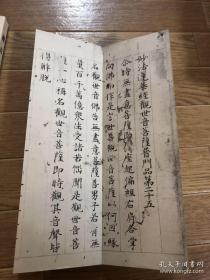 妙法蓮華經觀世音菩薩普門品第二十五
尒時無盡意菩薩即從座起偏袒右肩合掌
向佛而作是言世尊觀世音菩薩以何因緣
名觀世音佛告無盡意菩薩善男子若有無
量百千萬億衆生受諸苦惱聞是觀世音菩薩
一心稱名觀世音菩薩即時觀其音聲皆
得解脫